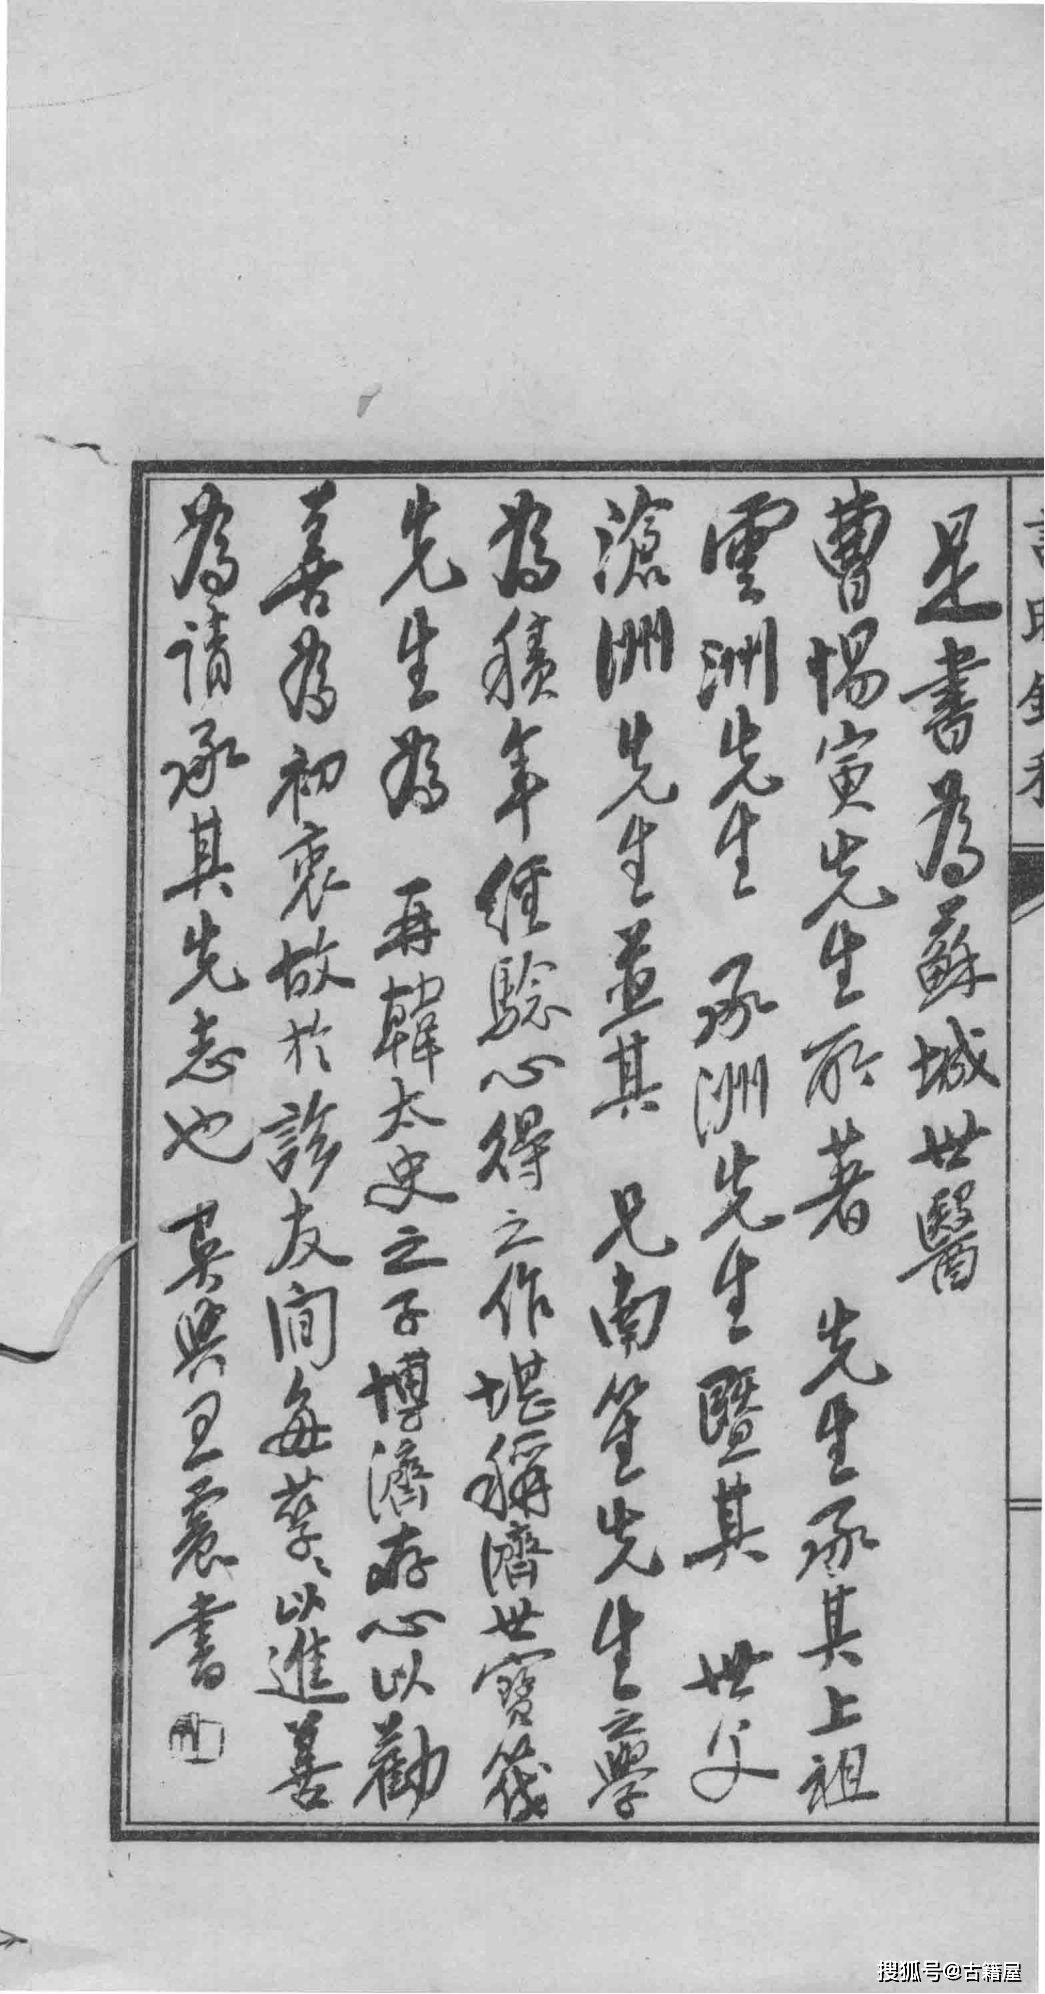 是書為蘇城世醫
曹惕寅先生所著 先生承其上祖
雲洲先生 承洲先生暨其 世父
滄洲先生並其 兄南笙先生之學
為積年經驗心得之作堪稱濟世寶筏
先生為 再韓太史之子博濟存心以勸
善為初衷故於診友間每孳〻以進善
為請承其先志也 吳興王震書
搜狐号@古籍屋